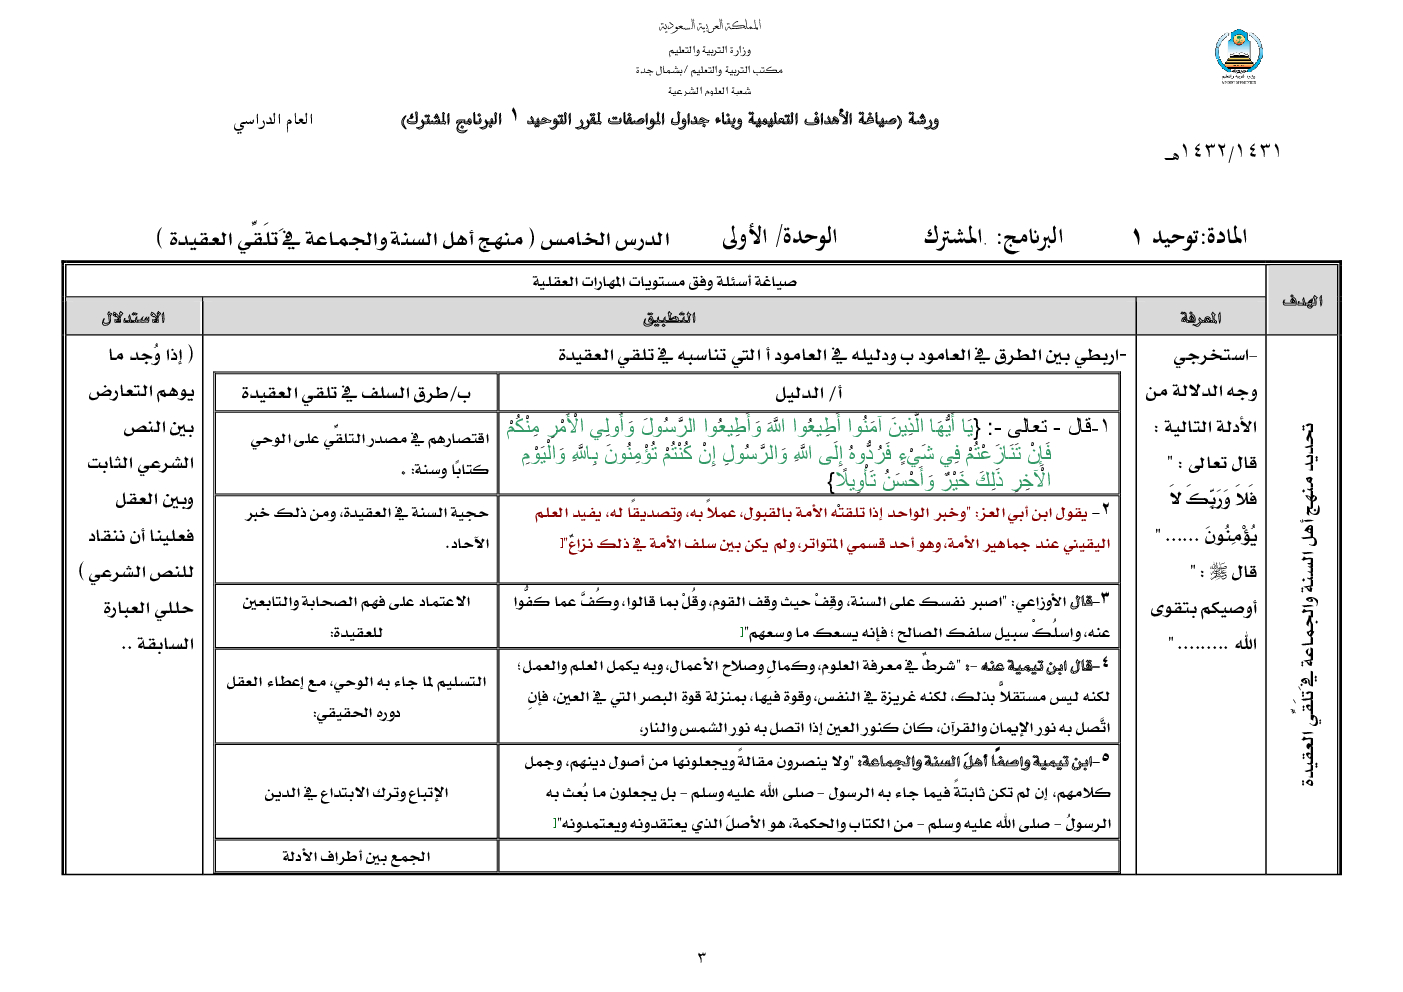 المملكة العربية السعودية
وزارة التربية والتعليم
مكتب التربية والتعليم /بشمال جدة
شعبة العلوم الشرعية
ورشة (صياغة الأهداف التعليمية وبناء جداول المواصفات لمقرر التوحيد ١ البرنامج المشترك) العام الدراسي
١٤٣٢/١٤٣١هـ
المادة:توحيد ١ البرنامج: .المشترك الوحدة/ الأولى الدرس الخامس ( منهج أهل السنة والجماعة في تَلَقِّي العقيدة )
الهدف
صياغة أسئلة وفق مستويات المهارات العقلية
المعرفة
التطبيق
الاستدلال
تحديد منهج أهل السنة والجماعة في تَلَقِّي العقيدة
-استخرجي
وجه الدلالة من
الأدلة التالية :
قال تعالى : "
فَلاَ وَرَبِّكَ لاَ
يُؤْمِنُونَ ...... "
قال ﷺ : "
أوصيكم بتقوى
الله ......... "
-اربطي بين الطرق في العامود ب ودليله في العامود أ التي تناسبه في تلقي العقيدة
أ/ الدليل
ب/طرق السلف في تلقي العقيدة
١-قال - تعالى -: {يَا أَيُّهَا الَّذِينَ آمَنُوا أَطِيعُوا اللَّهَ وَأَطِيعُوا الرَّسُولَ وَأُولِي الْأَمْرِ مِنْكُمْ
فَإِنْ تَنَازَعْتُمْ فِي شَيْءٍ فَرُدُّوهُ إِلَى اللَّهِ وَالرَّسُولِ إِنْ كُنْتُمْ تُؤْمِنُونَ بِاللَّهِ وَالْيَوْمِ
الْآخِرِ ذَلِكَ خَيْرٌ وَأَحْسَنُ تَأْوِيلًا}
اقتصارهم في مصدر التلقِّي على الوحي
كتابًا وسنة: ٠
٢- يقول ابن أبي العز: "وخبر الواحد إذا تلقتْه الأمة بالقبول، عملاً به، وتصديقًا له، يفيد العلم
اليقيني عند جماهير الأمة، وهو أحد قسمي المتواتر، ولم يكن بين سلف الأمة في ذلك نزاعٌ"[
حجية السنة في العقيدة، ومن ذلك خبر
الآحاد.
٣-قال الأوزاعي: "اصبر نفسك على السنة، وقِفْ حيث وقف القوم، وقُلْ بما قالوا، وكُفَّ عما كفُّوا
عنه، واسلُكْ سبيل سلفك الصالح ؛ فإنه يسعك ما وسعهم"[
الاعتماد على فهم الصحابة والتابعين
للعقيدة:
٤-قال ابن تيمية عنه -: "شرطٌ في معرفة العلوم، وكمالِ وصلاح الأعمال، وبه يكمل العلم والعمل؛
لكنه ليس مستقلاًّ بذلك، لكنه غريزة في النفس، وقوة فيها، بمنزلة قوة البصر التي في العين، فإنِ
اتَّصل به نور الإيمان والقرآن، كان كنور العين إذا اتصل به نور الشمس والنار،
التسليم لما جاء به الوحي، مع إعطاء العقل
دوره الحقيقي:
٥-ابن تيمية واصفًا أهلَ السنة والجماعة: "ولا ينصرون مقالةً ويجعلونها من أصول دينهم، وجمل
كلامهم، إن لم تكن ثابتةً فيما جاء به الرسول – صلى الله عليه وسلم – بل يجعلون ما بُعث به
الرسولُ – صلى الله عليه وسلم – من الكتاب والحكمة، هو الأصلَ الذي يعتقدونه ويعتمدونه"[
الإتباع وترك الابتداع في الدين
الجمع بين أطراف الأدلة
( إذا وُجد ما
يوهم التعارض
بين النص
الشرعي الثابت
وبين العقل
فعلينا أن ننقاد
للنص الشرعي )
حللي العبارة
السابقة ..
٣